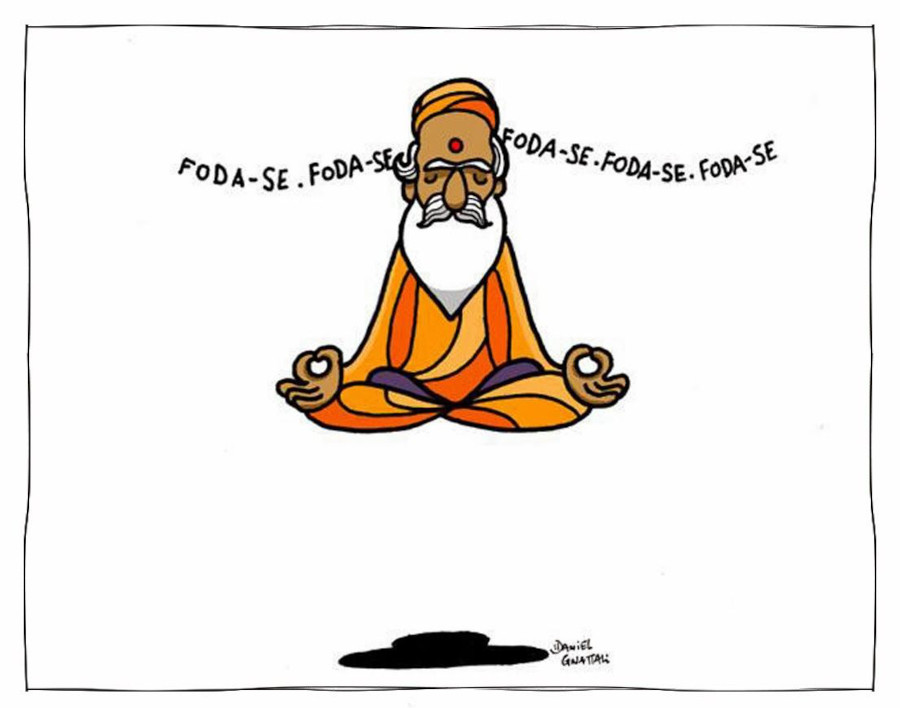 FODA-SE. FODA-SE
FODA-SE. FODA-SE. FODA-SE
DANiEL
GNATTALi